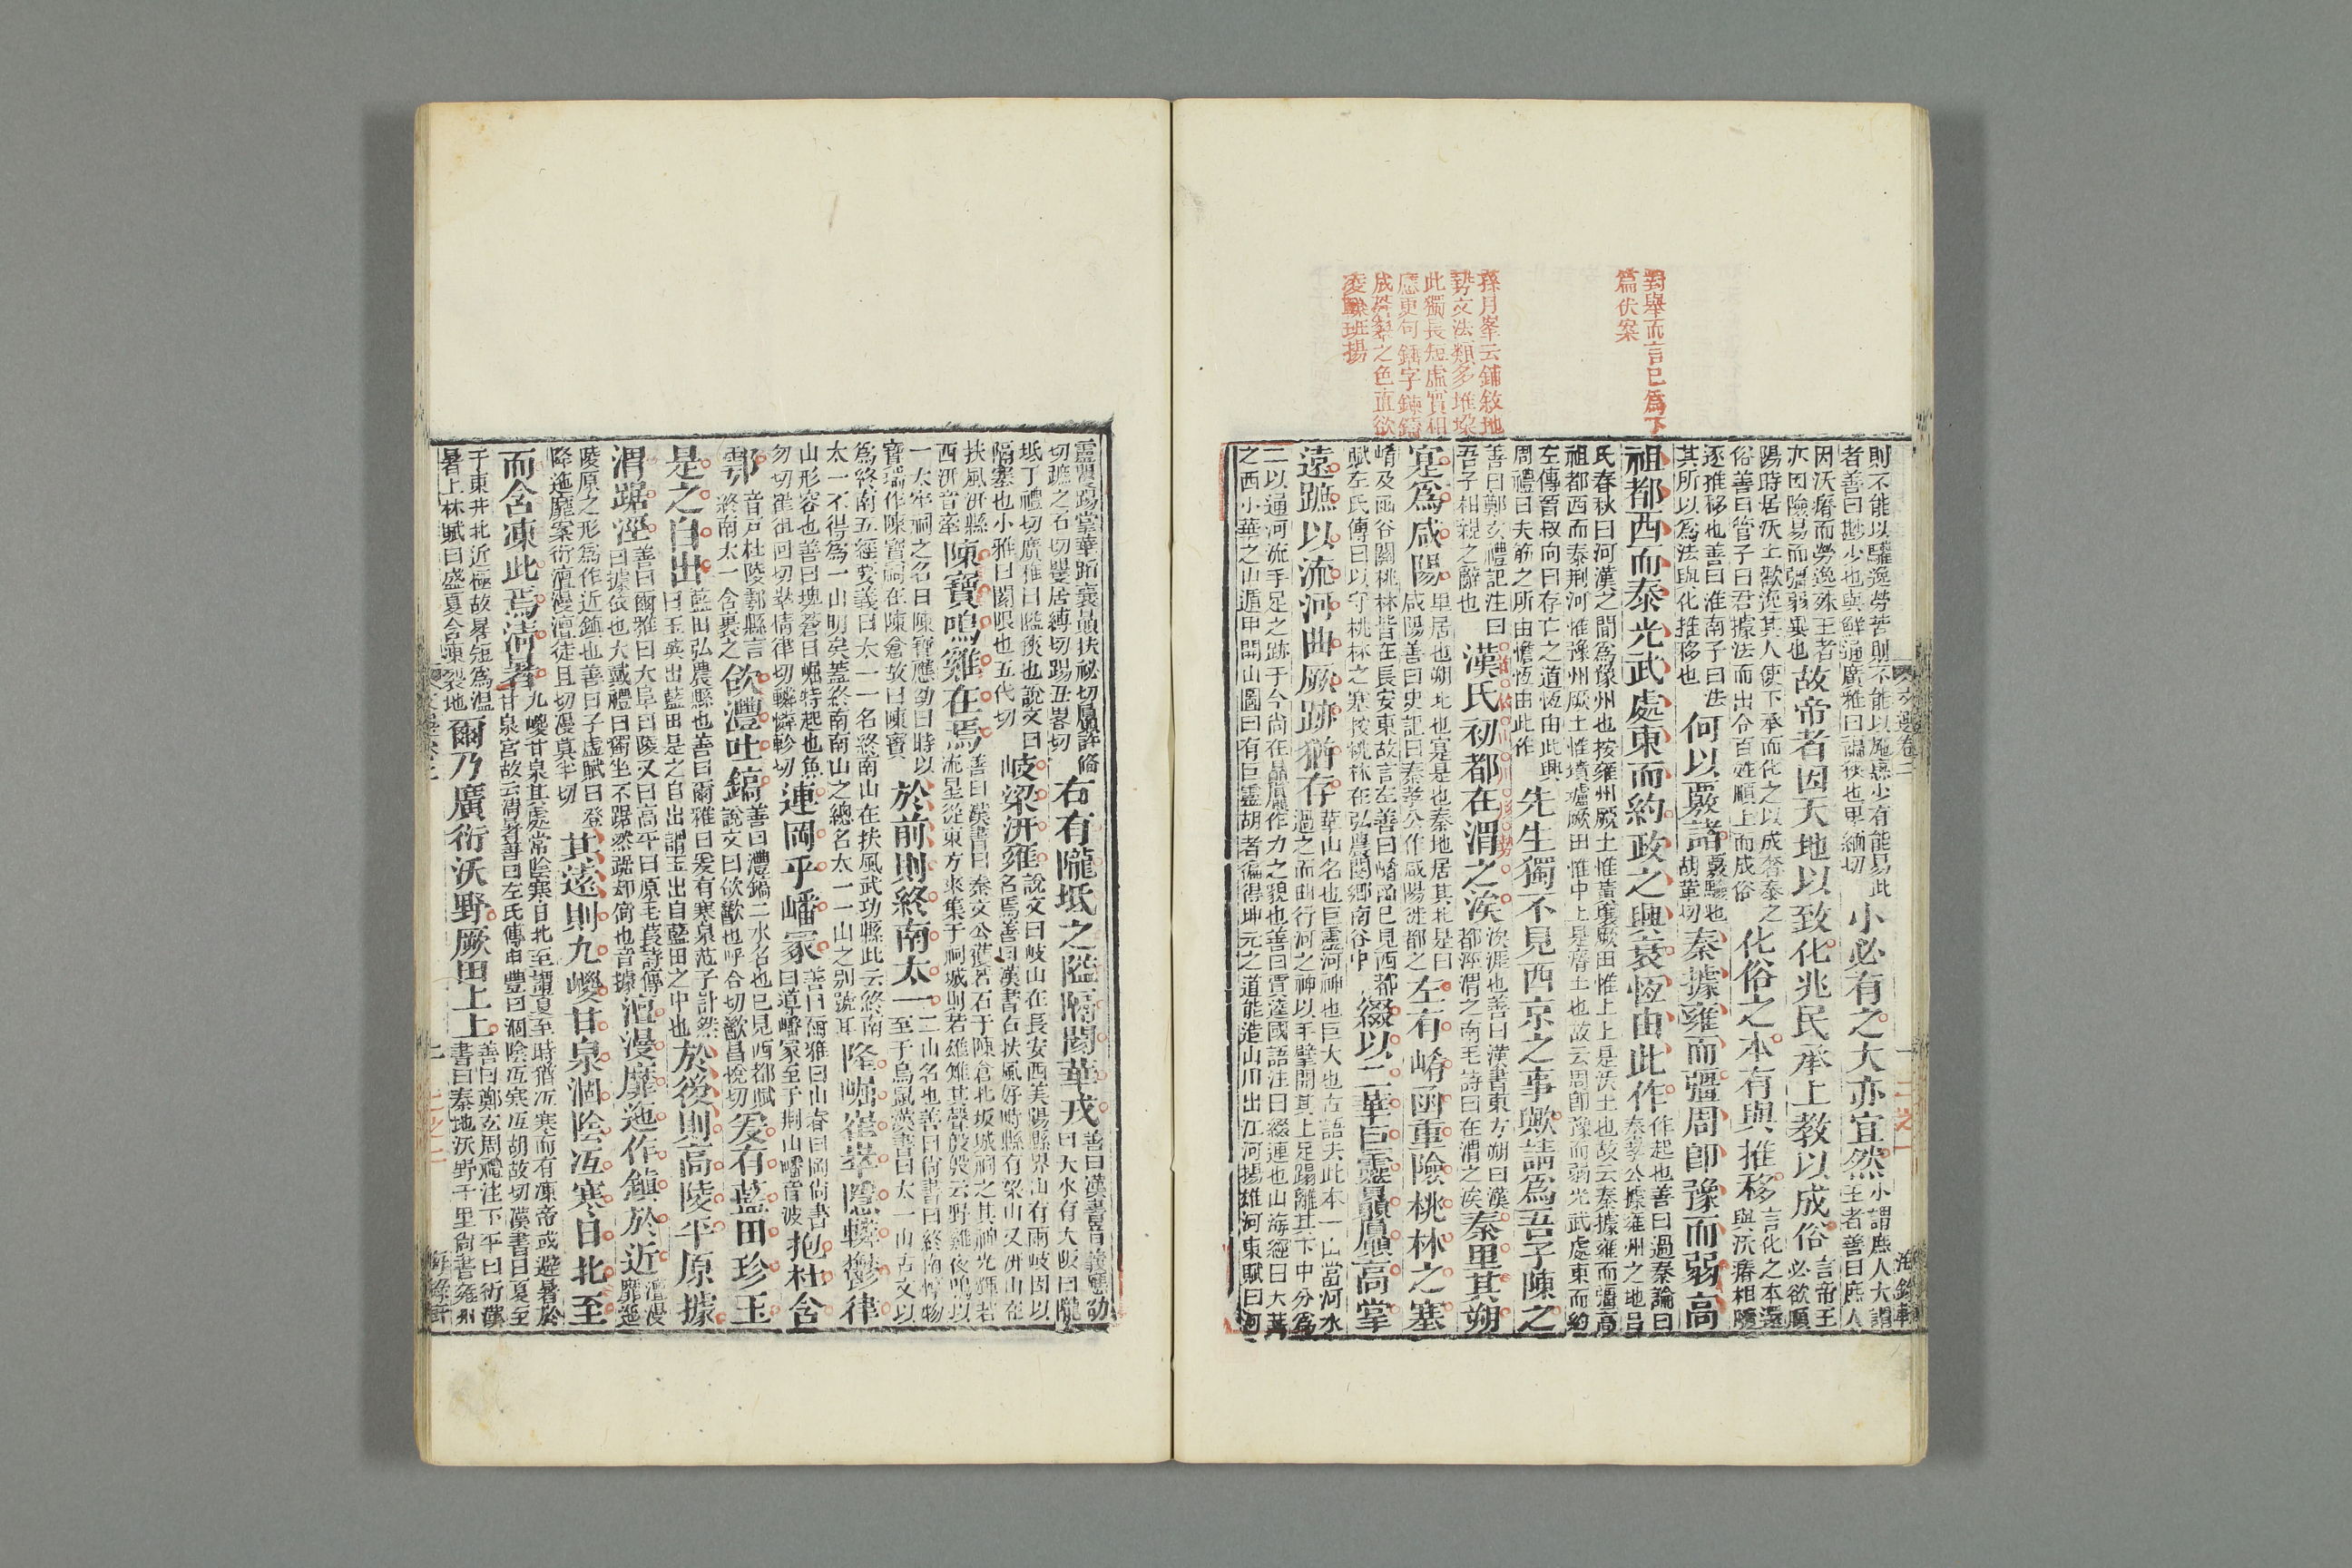 對舉而言已爲下
篇伏案
孫月峯云鋪敘地
勢文法類多堆垛
此獨長短虛實相
應更句錘字鍊鎔
成蒼翠之色直欲
凌轢班揚
則不能以驩逸勞苦則不能以施惠少有能易此
者善曰尠少也與鮮通廣雅曰褊狹也卑緬切
小必有之大亦宜然
小謂庶人大謂
王者善曰庶人
因沃瘠而勞逸殊王者
亦因險易而彊弱異也
故帝者因天地以致化兆民承上教以成俗
言帝王
必欲順
陽時居沃土歡逸其人使下承而化之以成奢泰之
俗善曰管子曰君據法而出令百姓順上而成俗
化俗之本有與推移
言化之本還
與沃瘠相隨
逐推移也善曰淮南子曰法
其所以爲法與化推移也
何以覈諸
覈驗也
胡革切
秦據雍而彊周卽豫而弱高
祖都西而泰光武處東而約政之興衰恆由此作
作起也善曰過秦論曰
秦孝公據雍州之地呂
氏春秋曰河漢之間爲豫州也按雍州厥土惟黃壤厥田惟上上是沃土也故云秦據雍而彊高
祖都西而泰荆河惟豫州厥土惟墳壚厥田惟中上是瘠土也故云周卽豫而弱光武處東而約
左傳晉叔向曰存亡之道恆由此興
周禮曰夫筋之所由憺恆由此作
先生獨不見西京之事歟請爲吾子陳之
善曰鄭玄禮記注曰
吾子相親之辭也
漢氏初都在渭之涘
涘涯也善曰漢書東方朔曰漢
都涇渭之南毛詩曰在渭之涘
秦里其朔
寔爲咸陽
里居也朔北也寔是也秦地居其北是曰
咸陽善曰史記曰秦孝公作咸陽徙都之
左有崤函重險桃林之塞
崤及函谷關桃林皆在長安東故言左善曰崤函已見西都
賦左氏傳曰以守桃林之塞按桃林在弘農閿鄉南谷中
綴以二華巨靈贔屭高掌
遠蹠以流河曲厥跡猶存
華山名也巨靈河神也巨大也古語云此本一山當河水
過之而曲行河之神以手擘開其上足蹋離其下中分爲
二以通河流手足之跡于今尚在贔屭作力之貌也善曰賈逵國語注曰綴連也山海經曰太華
之西小華之山遁甲開山圖曰有巨靈胡者徧得坤元之道能造山川出江河揚雄河東賦曰河
靈矍踢掌華蹈襄贔扶祕切屭許備
切蹠之石切矍居縛切踢丑略切
右有隴坻之隘隔閡華戎
善曰漢書音義應劭
曰天水有大阪曰隴
坻丁禮切廣雅曰隘狹也說文曰
隔塞也小雅曰閡限也五代切
岐梁汧雍
說文曰岐山在長安西美陽縣界山有兩岐因以
名焉善曰漢書右扶風好畤縣有梁山又汧山在
扶風汧縣
西汧音牽
陳寶鳴雞在焉
善曰漢書曰秦文公獲若石于陳倉北坂城祠之其神光輝若
流星從東方來集于祠城則若雄雉其聲殷殷云野雞夜鳴以
一太牢祠之名曰陳寶應劭曰時以
寶瑞作陳寶祠在陳倉故曰陳寶
於前則終南太一
二山名也善曰尚書曰終南惇物
至于鳥鼠漢書曰太一山古文以
爲終南五經要義曰太一一名終南山在扶風武功縣此云終南
太一不得爲一山明矣蓋終南南山之總名太一一山之別號耳
隆崛崔崒隱轔鬱律
山形容也善曰塊蒼曰崛特起也魚
勿切崔徂回切崒情律切轔憐軫切
連岡乎嶓冢
善曰爾雅曰山脊曰岡尚書
曰導嶓冢至于荆山嶓音波
抱杜含
鄠
音戸杜陵鄠縣言
終南太一含裹之
欱灃吐鎬
善曰灃鎬二水名也已見西都賦
說文曰欱歠也呼合切歠昌悅切
爰有藍田珍玉
是之自出
藍田弘農縣也善曰爾雅曰爰有寒泉范子計然
曰玉英出藍田是之自出謂玉出自藍田之中也
於後則高陵平原據
渭踞涇
善曰爾雅曰大阜曰陵又曰高平曰原毛萇詩傳
曰據依也大戴禮曰獨坐不踞然踞却倚也音據
澶漫靡迤作鎮於近
澶漫
靡迤
陵原之形爲作近鎮也善曰子虛賦曰登
降迤靡案衍澶漫澶徒旦切漫莫半切
其遠則九嵕甘泉涸陰沍寒日北至
而含凍此焉清暑
九嵕甘泉其處常陰寒日北至謂夏至時猶沍寒而有凍帝或避暑於
甘泉宮故云清暑善曰左氏傳申豐曰涸陰沍寒沍胡故切漢書曰夏至
于東井北近極故晷短爲溫
暑上林賦曰盛夏含凍裂地
爾乃廣衍沃野厥田上上
善曰鄭玄周禮注下平曰衍漢
書曰秦地沃野千里尙書雍州